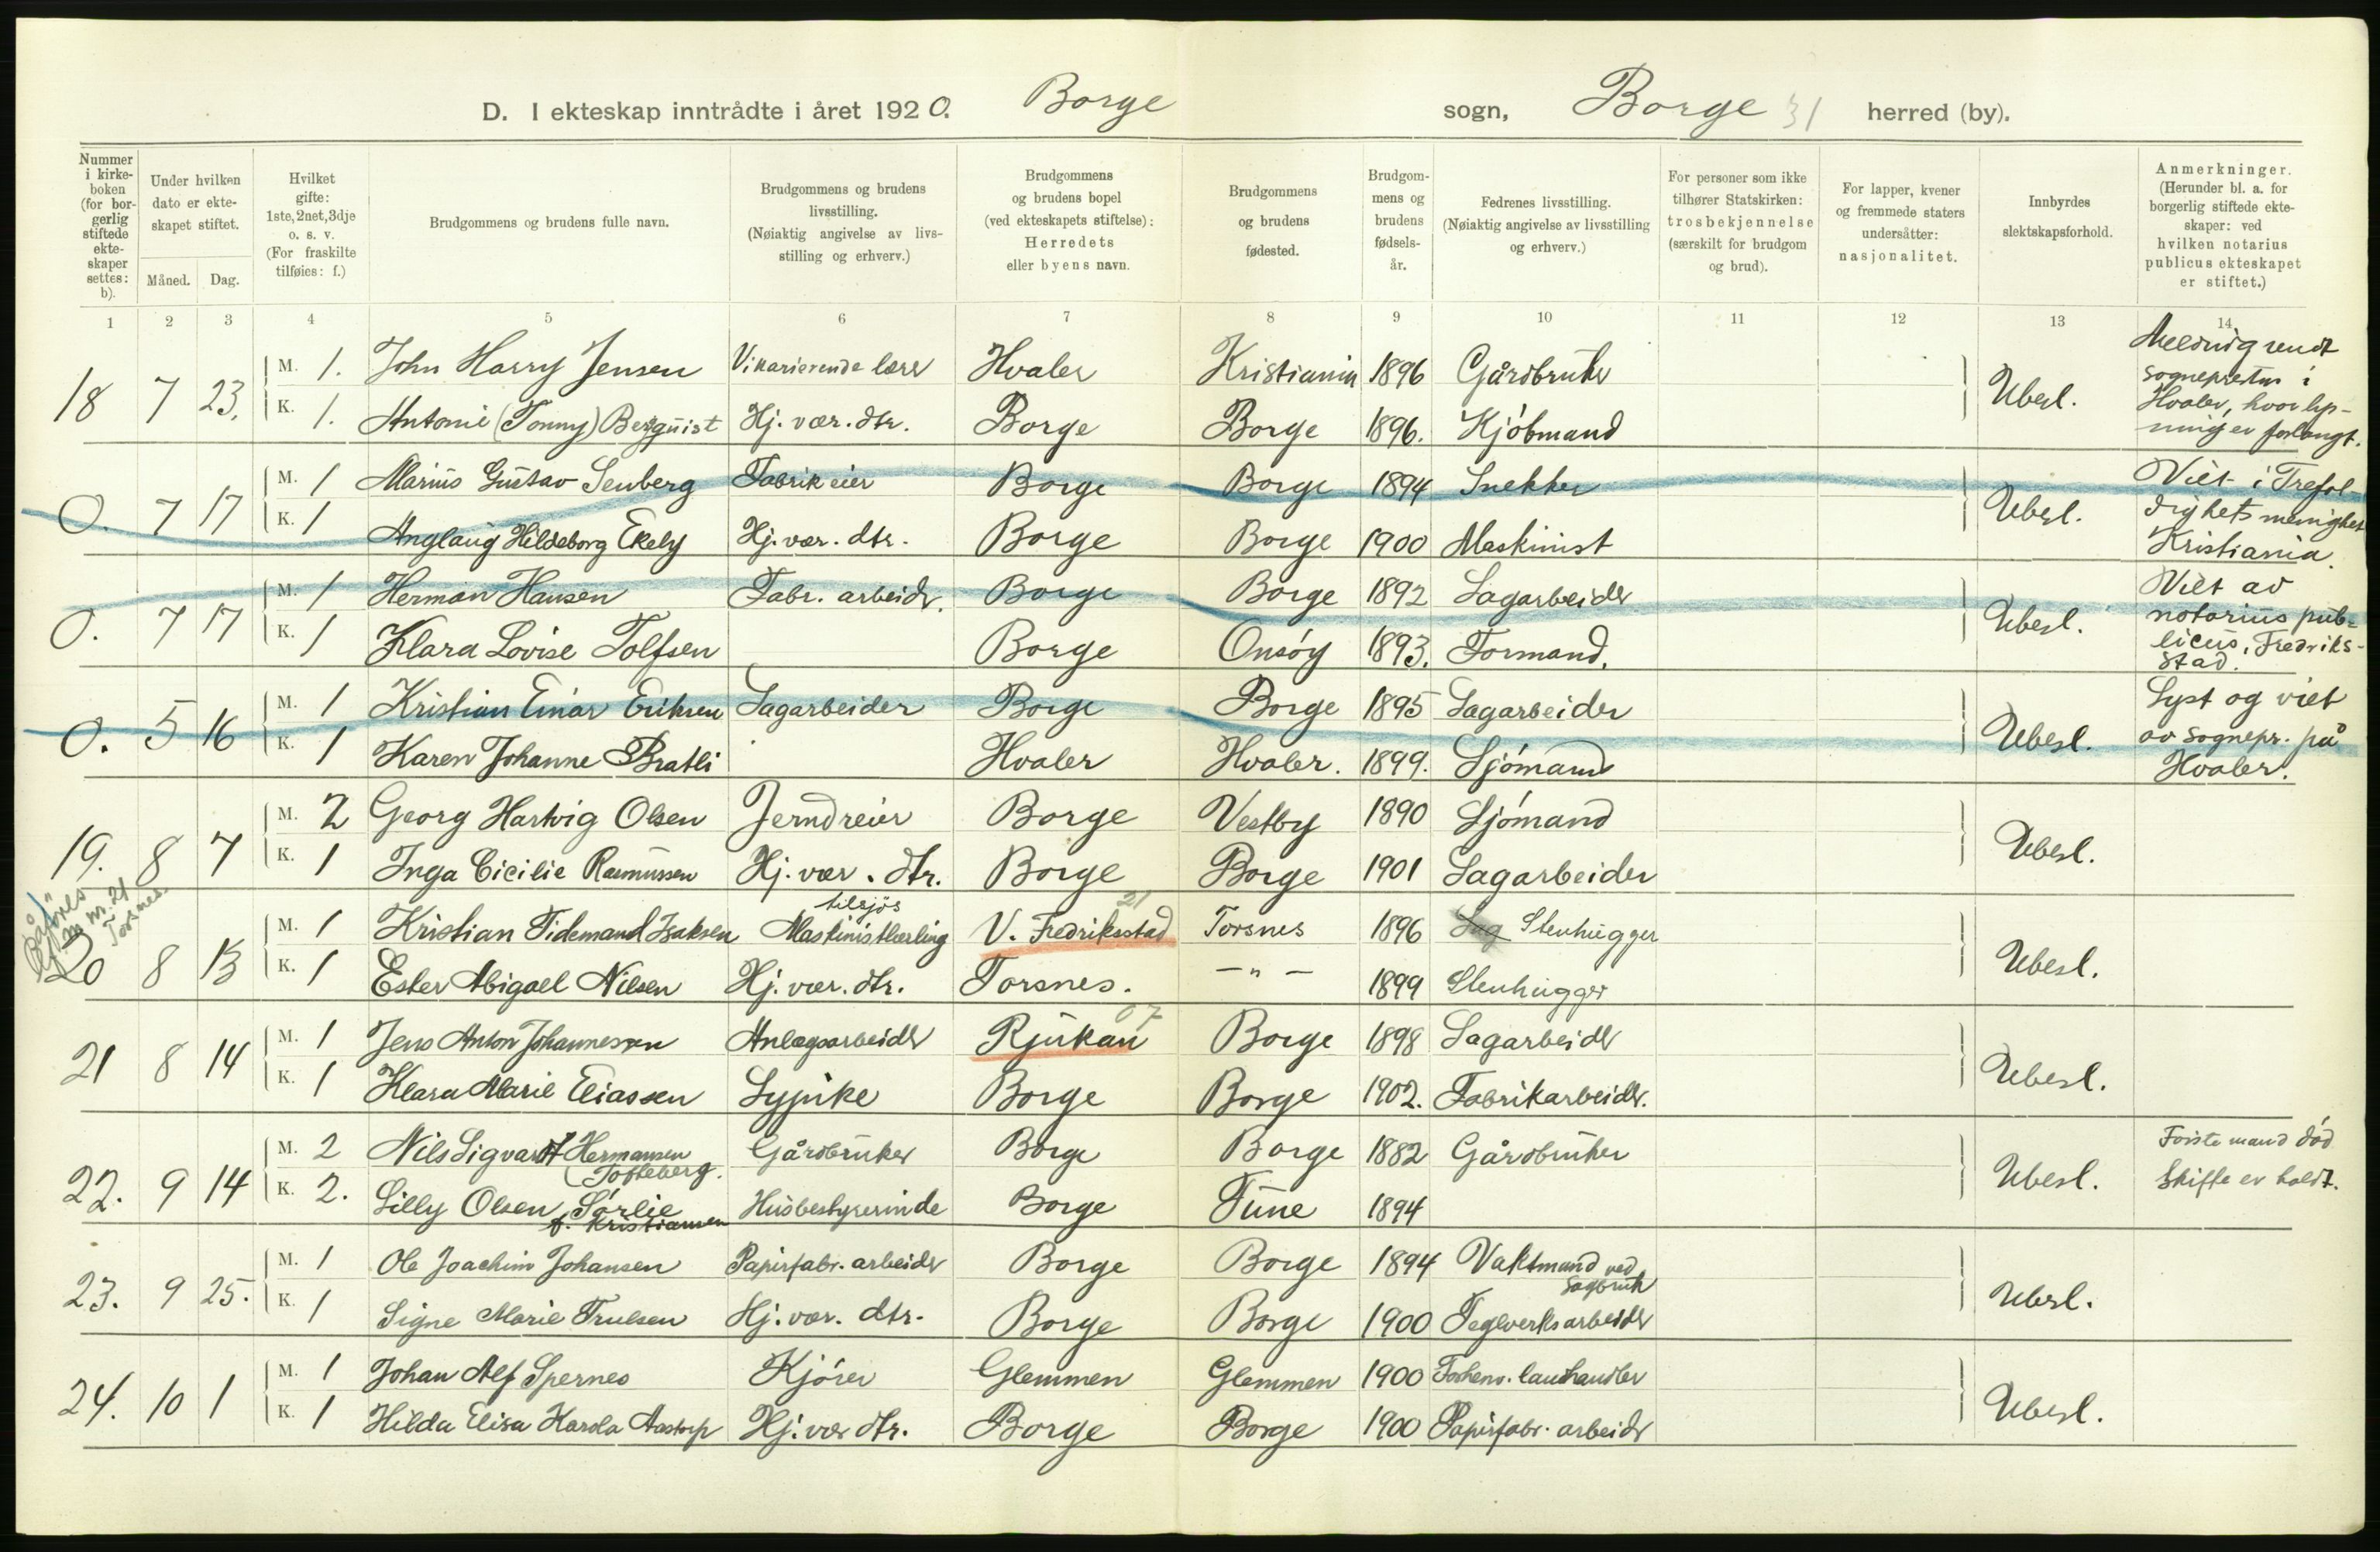 D. I ekteskap inntrådte i året 1920. Borge sogn, Borge 31 herred (by).
Nummer i kirke-boken (for borgerlig stiftede ekte-skaper settes: b).
Under hvilken dato er ekte-skapet stiftet.
Måned. Dag.
Hvilket gifte: 1ste, 2net, 3dje o. s. v. (For fraskilte tilføies: f.)
Brudgommens og brudens fulle navn.
Brudgommens og brudens livsstilling. (Nøiaktig angivelse av livs-stilling og erhverv.)
Brudgommens og brudens bopel (ved ekteskapets stiftelse): Herredets eller byens navn.
Brudgommens og brudens fødested.
Brudgom-mens og brudens fødsels-år.
Fedrenes livsstilling. (Nøiaktig angivelse av livsstilling og erhverv.)
For personer som ikke tilhører Statskirken: trosbekjennelse (særskilt for brudgom og brud).
For lapper, kvener og fremmede staters undersåtter: nasjonalitet.
Innbyrdes slektskapsforhold.
Anmerkninger. (Herunder bl. a. for borgerlig stiftede ekte-skaper: ved hvilken notarius publicus ekteskapet er stiftet.)
1 2 3 4 5 6 7 8 9 10 11 12 13 14
18 7 23. M. 1. John Harry Jensen Vikarierende lærer Hvaler Kristiania 1896 Gårdbruker Ubesl.
K. 1. Antonie (Tonny) Bergquist Hj. vær. dtr. Borge Borge 1896. Kjøbmand
Melding sendt
sognepresten i
Hvaler, hvor lys-
ning er forlangt.
0. 7 17 M. 1 Marius Gustav Senberg Fabrikeier Borge Borge 1894 Snekker Ubesl.
K. 1 Anglaug Hildeborg Ekely Hj. vær. dtr. Borge Borge 1900 Maskinist
Viet i Trefol-
dighets menighet
Kristiania.
0. 7 17 M. 1 Herman Hansen Fabr. arbeidr. Borge Borge 1892 Sagarbeider Ubesl.
K. 1 Klara Lovise Tolfsen Borge Onsøy 1893. Formand.
Viet av
notarius pub-
licus, Fredriks-
stad.
0. 5 16 M. 1 Kristian Einar Eriksen Sagarbeider Borge Borge 1895 Sagarbeider Ubesl.
K. 1 Karen Johanne Bratli Hvaler Hvaler. 1899. Sjømand
Lyst og viet
av sognepr. på
Hvaler.
19. 8 7 M. 2 Georg Hartvig Olsen Jerndreier Borge Vestby 1890 Sjømand Ubesl.
K. 1 Inga Cicilie Rasmussen Hj. vær. dtr. Borge Borge 1901 Sagarbeider
nr. 21
Torsnes.
tilsjøs 21
20 8 13 M. 1 Kristian Tidemand Isaksen Maskinistlærling V. Fredriksstad Torsnes 1896 Sag Stenhugger Ubesl.
K. 1 Ester Abigael Nilsen Hj. vær. dtr. Torsnes. — " — 1899 Stenhugger
07
21 8 14 M. 1 Jens Anton Johannessen Anlægsarbeider Rjukan Borge 1898 Sagarbeider Ubesl.
K. 1 Klara Marie Eliassen Sypike Borge Borge 1902. Fabrikarbeider.
22. 9 14 M. 2 Nils Sigvart Hermansen Gårdbruker Borge Borge 1882 Gårdbruker Ubesl. Første mand død
(Tofteberg.
K. 2. Lilly Olsen Sørlie Husbestyrerinde Borge Tune 1894 Skifte er holdt.
f. Kristiansen
23. 9 25. M. 1 Ole Joachim Johansen Papirfabr. arbeider Borge Borge 1894 Vaktmand ved Ubesl.
sagbruk
K. 1 Signe Marie Trulsen Hj. vær. dtr. Borge Borge 1900 Teglverksarbeider
24. 10 1 M. 1 Johan Alf Spernes Kjører Glemmen Glemmen 1900 Forhenv. landhandler Ubesl.
K. 1 Hilda Elisa Karola Aastorp Hj. vær dtr. Borge Borge 1900 Papirfabr. arbeidr